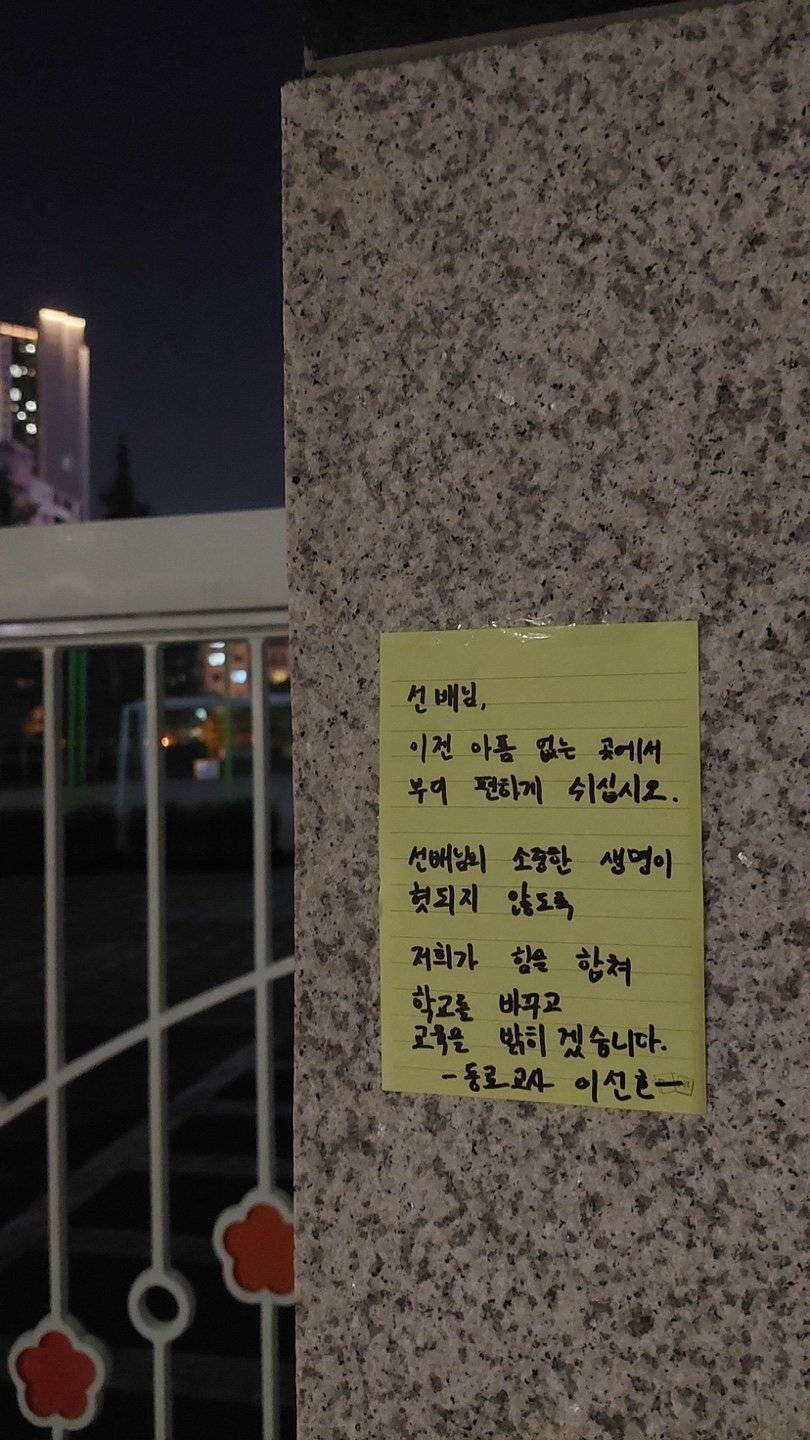 선배님,
이젠 아픔 없는 곳에서
부디 편하게 쉬십시오.
선배님의 소중한 생명이
헛되지 않도록
저희가 힘을 합쳐
학교를 바꾸고
교육을 밝히겠습니다.
-동료교사 이선호-